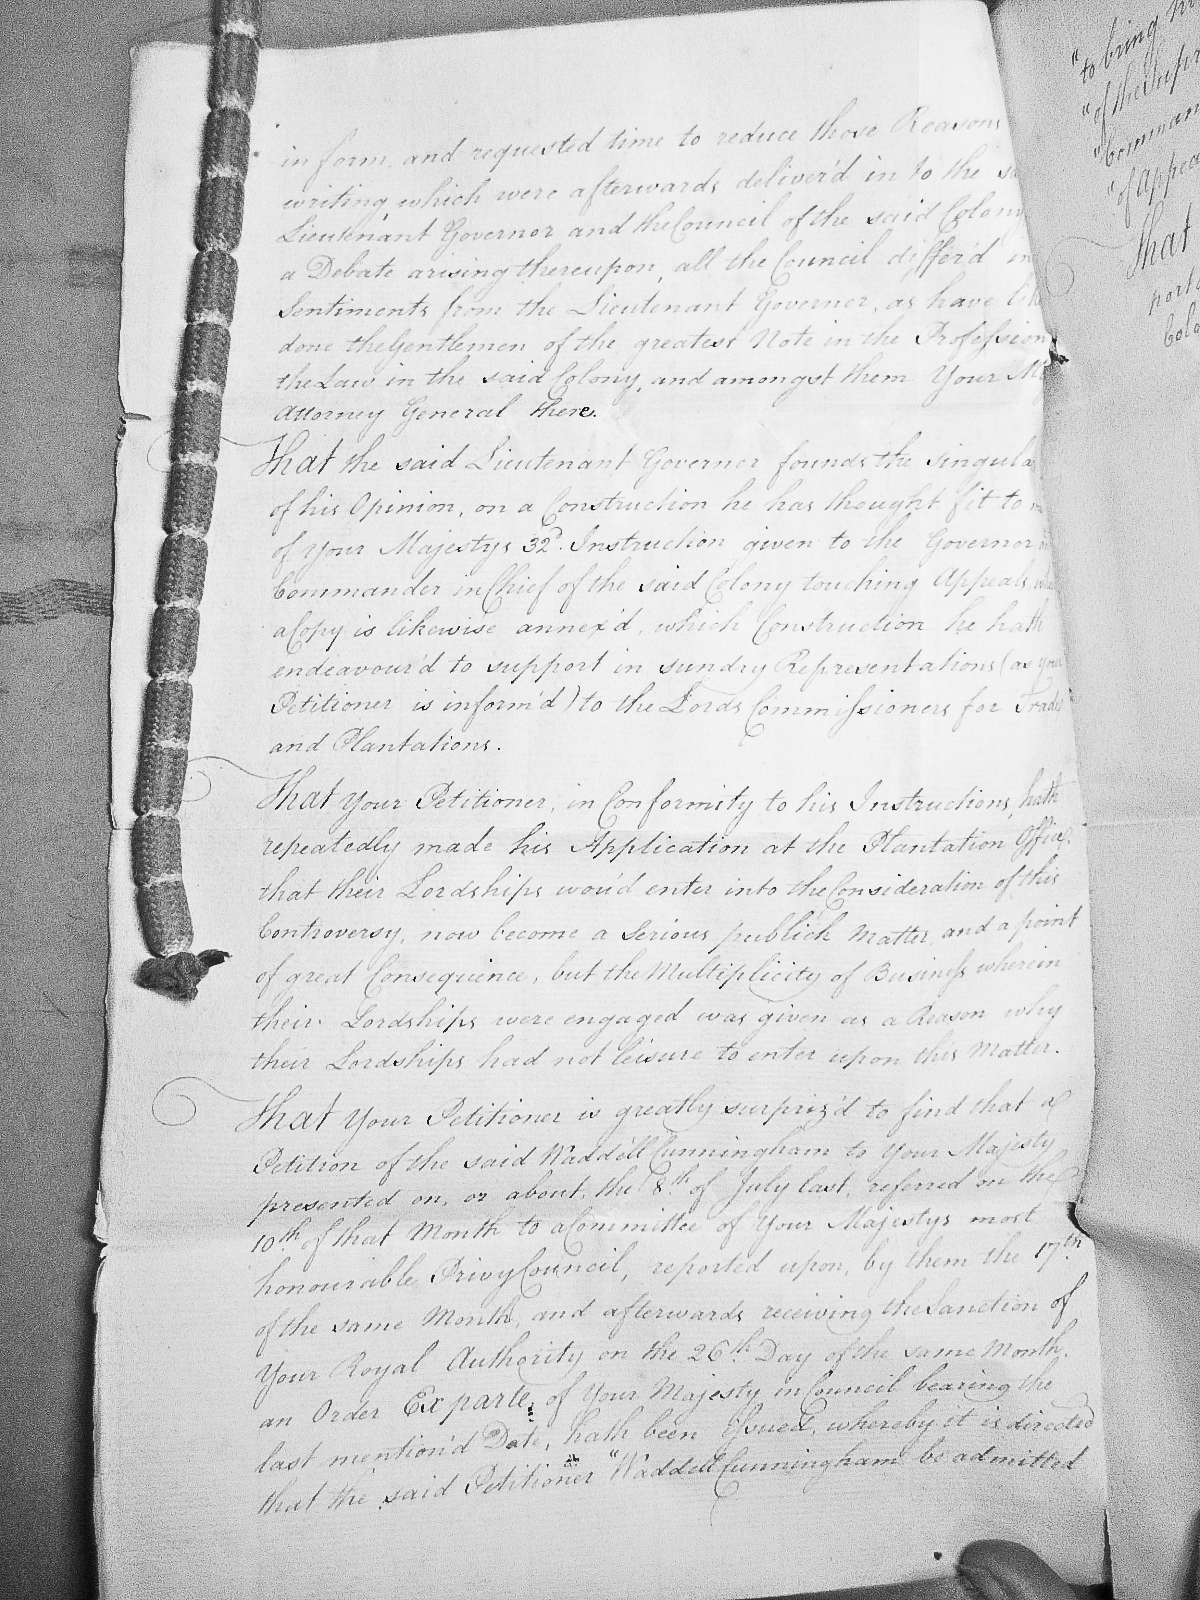 in form, and requested time to reduce those Reasons
writing, which were afterwards deliver'd in to the
Lieutenant Governor and the Council of the said Colony
a Debate arising thereupon, all the Council differ'd in
Sentiments from the Lieutenant Governor, as have
done the Gentlemen of the greatest Note in the Profession
the Law in the said Colony, and amongst them Your
Attorney General there.
That the said Lieutenant Governor founds the
of his Opinion, on a Construction he has thought fit to
of Your Majestys 32d. Instruction given to the Governor
Commander in Chief of the said Colony touching Appeals,
a Copy is likewise annex'd, which Construction he hath
endeavour'd to support in sundry Representations (as your
Petitioner is inform'd) to the Lords Commissioners for Trade
and Plantations.
That Your Petitioner, in Conformity to his Instructions, hath
repeatedly made his Application at the Plantation Office,
that their Lordships wou'd enter into the Consideration of this
Controversy, now become a Serious publick Matter, and a point
of great Consequence, but the Multiplicity of Business wherein
their Lordships were engaged was given as a Reason why
their Lordships had not leisure to enter upon this Matter.
That Your Petitioner is greatly surpriz'd to find that a
Petition of the said Waddell Cunningham to Your Majesty
presented on, or about, the 8th of July last, referred on the
10th of that Month to a Committee of Your Majestys most
honourable Privy Council, reported upon, by them the 17th
of the same Month, and afterwards receiving the Sanction of
Your Royal Authority on the 26th Day of the same Month,
an Order Ex parte, of Your Majesty in Council bearing the
last mention'd Date, hath been issued, whereby it is directed
that the said Petitioner "Waddell Cunningham be admitted
"to bring
"of the
"Comman
"of Appea
That